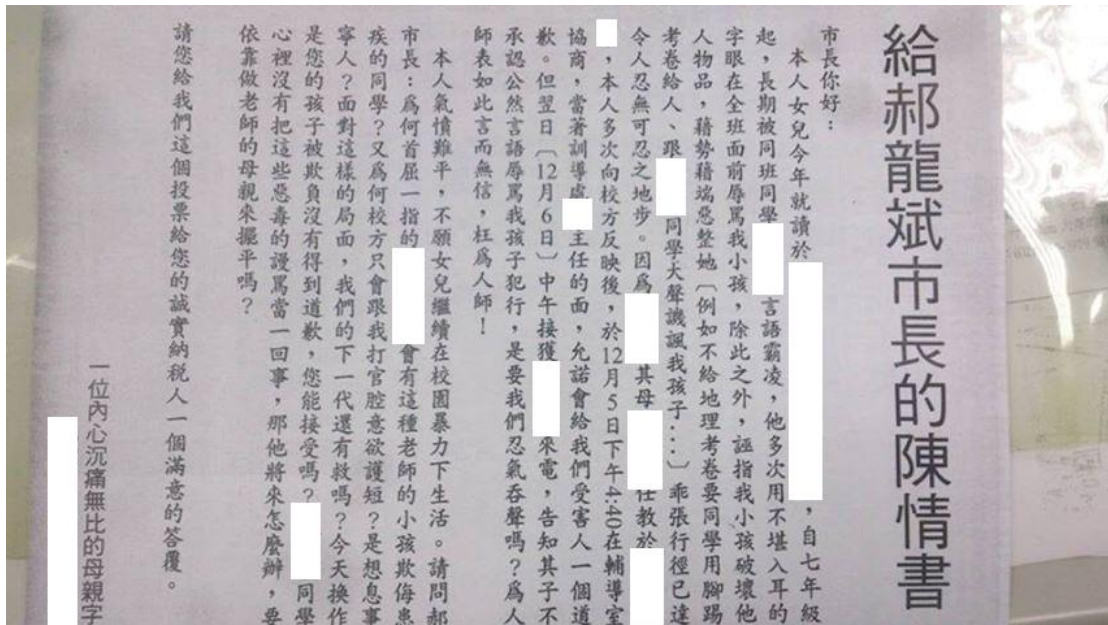 給郝龍斌市長的陳情書
市長你好：
本人女兒今年就讀於，自七年級
起，長期被同班同學言語霸凌，他多次用不堪入耳的
字眼在全班面前辱罵我小孩，除此之外，誣指我小孩破壞他
人物品，藉勢藉端惡整她〔例如不給地理考卷要同學用腳踢
考卷給人、跟同學大聲譏諷我孩子...〕乖張行徑已達
令人忍無可忍之地步。因為其母任教於
，本人多次向校方反映後，於12月5日下午4:40在輔導室
協商，當著訓導處主任的面，允諾會給我們受害人一個道
歉。但翌日〔12月6日〕中午接獲來電，告知其子不
承認公然言語辱罵我孩子犯行，是要我們忍氣吞聲嗎？為人
師表如此言而無信，枉為人師！
本人氣憤難平，不願女兒繼續在校園暴力下生活。請問郝
市長：為何首屈一指的會有這種老師的小孩欺侮患
疾的同學？又為何校方只會跟我打官腔意欲護短？是想息事
寧人？面對這樣的局面，我們的下一代還有救嗎？今天換作
是您的孩子被欺負沒有得到道歉，您能接受嗎？同學
心裡沒有把這些惡毒的謾罵當一回事，那他將來怎麼辦，要
依靠做老師的母親來擺平嗎？
請您給我們這個投票給您的誠實納稅人一個滿意的答覆。
一位內心沉痛無比的母親字